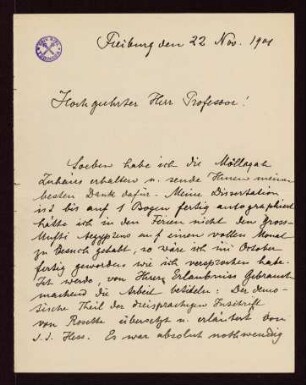 Freiburg den 22 Nov. 1901
Hochgeehrter Herr Professor!
Soeben habe ich die Möllaqat
Zuhairs erhalten u. sende Ihnen meinen
besten Dank dafür. Meine Dissertation
ist bis auf 1 Bogen fertig autographiert
hätte ich in den Ferien nicht den Gross-
Mufti Aegyptens auf einen vollen Monat
zu Besuch gehabt, so wäre ich im October
fertig geworden wie ich versprochen habe.
Ich werde, von Ihrer Erlaubniss Gebrauch
machend die Arbeit betiteln: Der demo-
tische Theil der dreisprachigen Inschrift
von Rosette übersetzt u. erläutert von
J. J. Hess. Es war absolut nothwendig